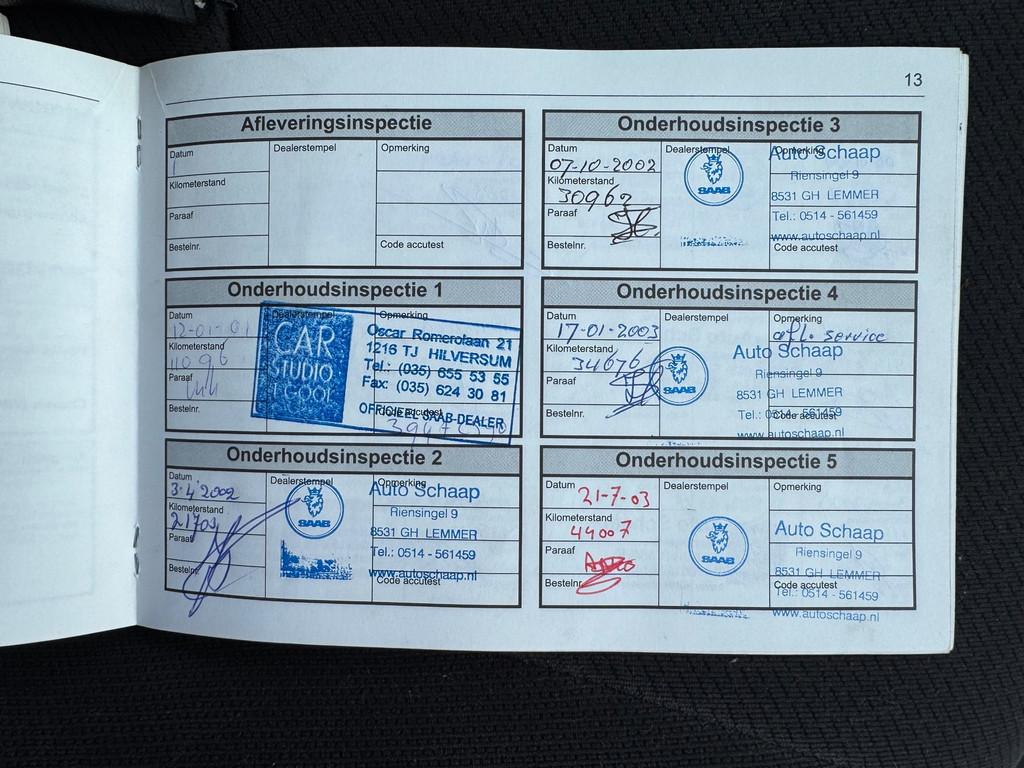 13
Afleveringsinspectie
Datum
Dealerstempel
Opmerking
Kilometerstand
Paraaf
Bestelnr.
Code accutest
Onderhoudsinspectie 1
Datum
Dealerstempel
Opmerking
12-01-01
Kilometerstand
11096
Paraaf
Bestelnr.
CAR
STUDIO
'T GOOI
Oscar Romerolaan 21
1216 TJ HILVERSUM
Tel.: (035) 655 53 55
Fax: (035) 624 30 81
OFFICIEEL SAAB-DEALER
Code accutest
Onderhoudsinspectie 2
Datum
Dealerstempel
Opmerking
3-4-2002
Kilometerstand
21709
Paraaf
Bestelnr.
SAAB
Auto Schaap
Riensingel 9
8531 GH LEMMER
Tel.: 0514 - 561459
www.autoschaap.nl
Code accutest
Onderhoudsinspectie 3
Datum
Dealerstempel
Opmerking
07-10-2002
Kilometerstand
30962
Paraaf
Bestelnr.
SAAB
Auto Schaap
Riensingel 9
8531 GH LEMMER
Tel.: 0514 - 561459
www.autoschaap.nl
Code accutest
Onderhoudsinspectie 4
Datum
Dealerstempel
Opmerking
17-01-2003
afl. service
Kilometerstand
34676
Paraaf
Bestelnr.
SAAB
Auto Schaap
Riensingel 9
8531 GH LEMMER
Tel.: 0514 - 561459
Code accutest
www.autoschaap.nl
Onderhoudsinspectie 5
Datum
Dealerstempel
Opmerking
21-7-03
Kilometerstand
44007
Paraaf
Bestelnr.
SAAB
Auto Schaap
Riensingel 9
8531 GH LEMMER
Code accutest
Tel.: 0514 - 561459
www.autoschaap.nl